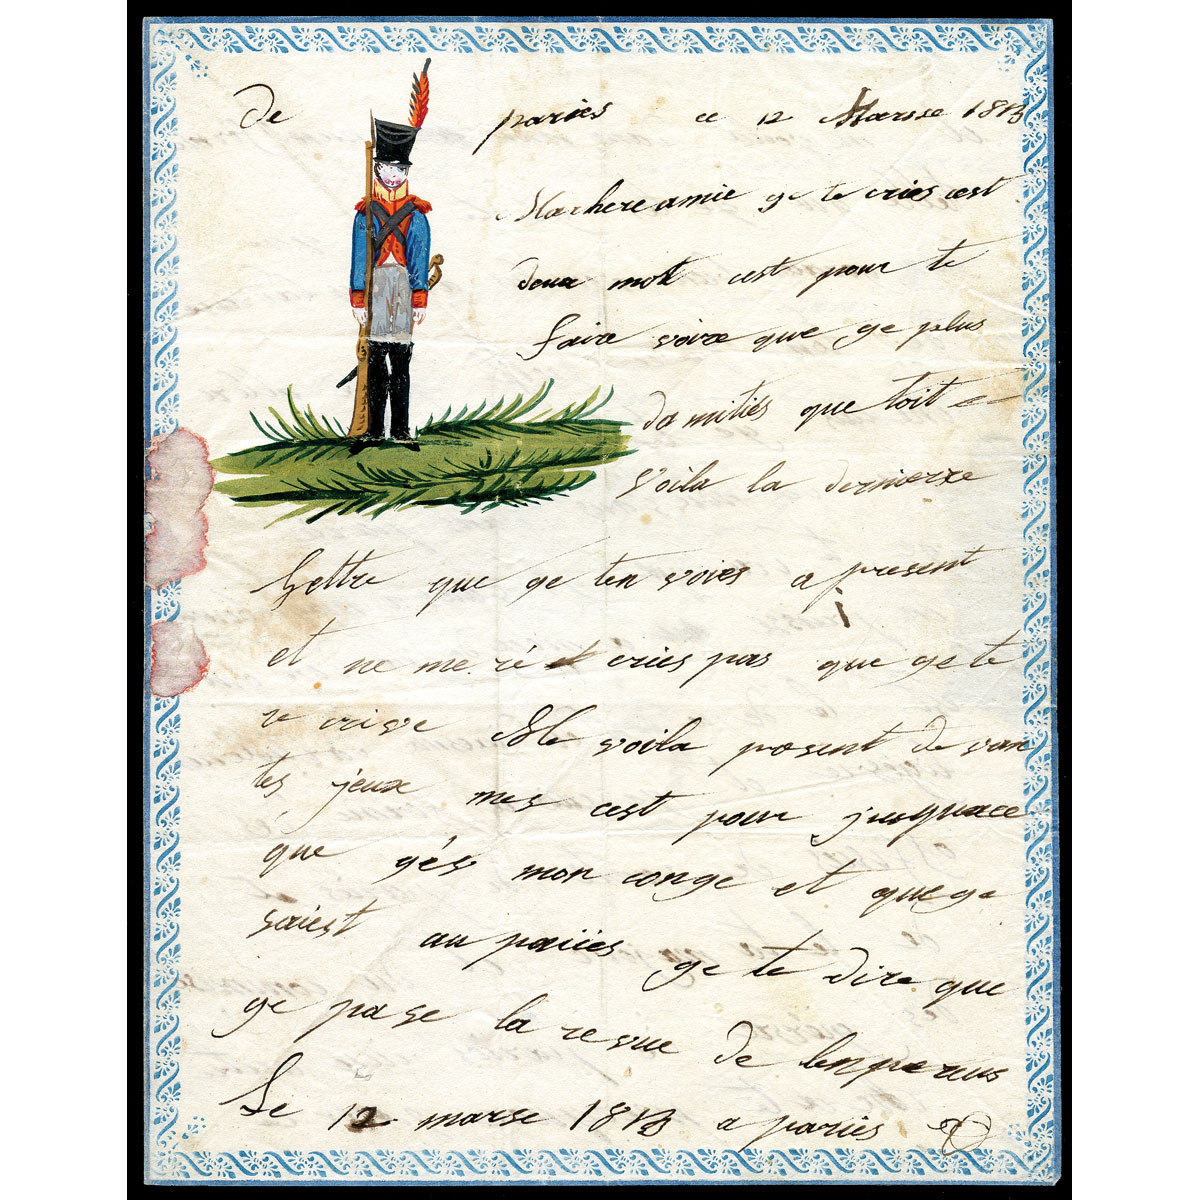 De paries ce 12 Marsse 1813
Machere amie ge te cries cest
deux mot cest pour te
faire voire que ge plus
damities que toit
voila la dernierre
lettre que ge ten voies a present
et ne me ré cries pas que ge te
re crive Me voila present de van
tes jeux mes cest pour jusquace
que gés mon conge et que ge
saiest au paiies ge te dire que
ge pase la revue de lenpereus
Le 12 marse 1813 a paries